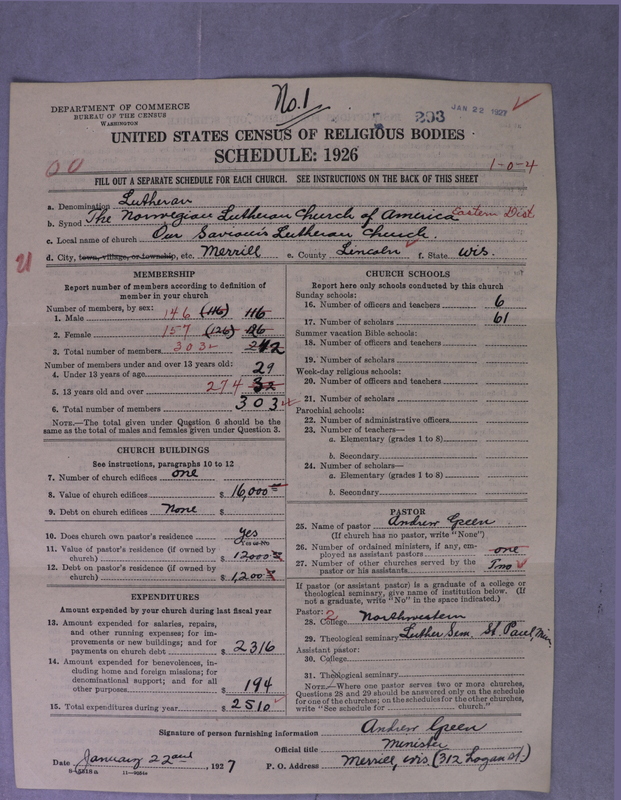 No. 1
DEPARTMENT OF COMMERCE
BUREAU OF THE CENSUS
WASHINGTON
293
JAN 22 1927
UNITED STATES CENSUS OF RELIGIOUS BODIES
SCHEDULE: 1926
00
1-0-4
FILL OUT A SEPARATE SCHEDULE FOR EACH CHURCH. SEE INSTRUCTIONS ON THE BACK OF THIS SHEET
a. Denomination Lutheran
b. Synod The Norwegian Lutheran Church of America Eastern Dist
c. Local name of church Our Saviour's Lutheran Church.
d. City, town, village, or township, etc. Merrill e. County Lincoln f. State Wis.
MEMBERSHIP
Report number of members according to definition of
member in your church
Number of members, by sex:
1. Male 146 (116) 116
2. Female 157 (126) 126
3. Total number of members 303 242
Number of members under and over 13 years old:
4. Under 13 years of age 29
5. 13 years old and over 274 32
6. Total number of members 303
NOTE.—The total given under Question 6 should be the
same as the total of males and females given under Question 3.
CHURCH BUILDINGS
See instructions, paragraphs 10 to 12
7. Number of church edifices one
8. Value of church edifices $ 16,000
9. Debt on church edifices None $
10. Does church own pastor's residence Yes
Yes or No
11. Value of pastor's residence (if owned by
church) $ 12000
12. Debt on pastor's residence (if owned by
church) $ 1,200
EXPENDITURES
Amount expended by your church during last fiscal year
13. Amount expended for salaries, repairs,
and other running expenses; for im-
provements or new buildings; and for
payments on church debt $ 2316
14. Amount expended for benevolences, in-
cluding home and foreign missions; for
denominational support; and for all
other purposes $ 194
15. Total expenditures during year $ 2510
CHURCH SCHOOLS
Report here only schools conducted by this church
Sunday schools:
16. Number of officers and teachers 6
17. Number of scholars 61
Summer vacation Bible schools:
18. Number of officers and teachers
19. Number of scholars
Week-day religious schools:
20. Number of officers and teachers
21. Number of scholars
Parochial schools:
22. Number of administrative officers
23. Number of teachers—
a. Elementary (grades 1 to 8)
b. Secondary
24. Number of scholars—
a. Elementary (grades 1 to 8)
b. Secondary
PASTOR
25. Name of pastor Andrew Green
(If church has no pastor, write "None")
26. Number of ordained ministers, if any, em-
ployed as assistant pastors one
27. Number of other churches served by the
pastor or his assistants Two
If pastor (or assistant pastor) is a graduate of a college or
theological seminary, give name of institution below. (If
not a graduate, write "No" in the space indicated.)
Pastor: 2
28. College Northwestern
29. Theological seminary Luther Sem. St. Paul, Min
Assistant pastor:
30. College
31. Theological seminary
NOTE.—Where one pastor serves two or more churches,
Questions 28 and 29 should be answered only on the schedule
for one of the churches; on the schedules for the other churches,
write "See schedule for church."
Signature of person furnishing information Andrew Green
Official title Minister
Date January 22nd, 1927 P. O. Address Merrill, Wis (312 Logan St.)